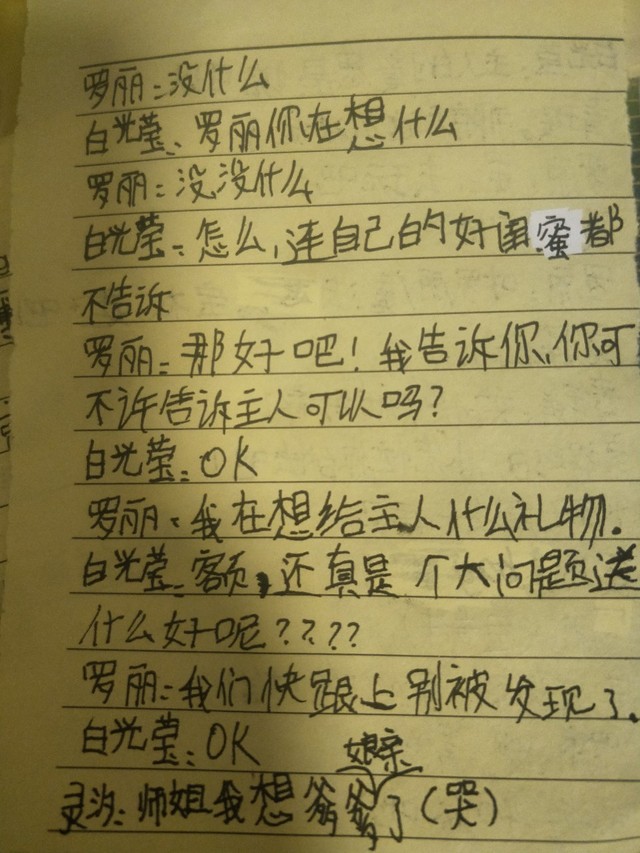 罗丽:没什么
白光莹:罗丽你在想什么
罗丽:没没什么
白光莹:怎么,连自己的好闺蜜都
不告诉
罗丽:那好吧!我告诉你,你可
不许告诉主人可以吗?
白光莹:OK
罗丽:我在想给主人什么礼物.
白光莹:额,还真是个大问题送
什么好呢????
罗丽:我们快跟上别被发现了.
白光莹:OK
娘亲
灵汐:师姐我想爹爹了(哭)